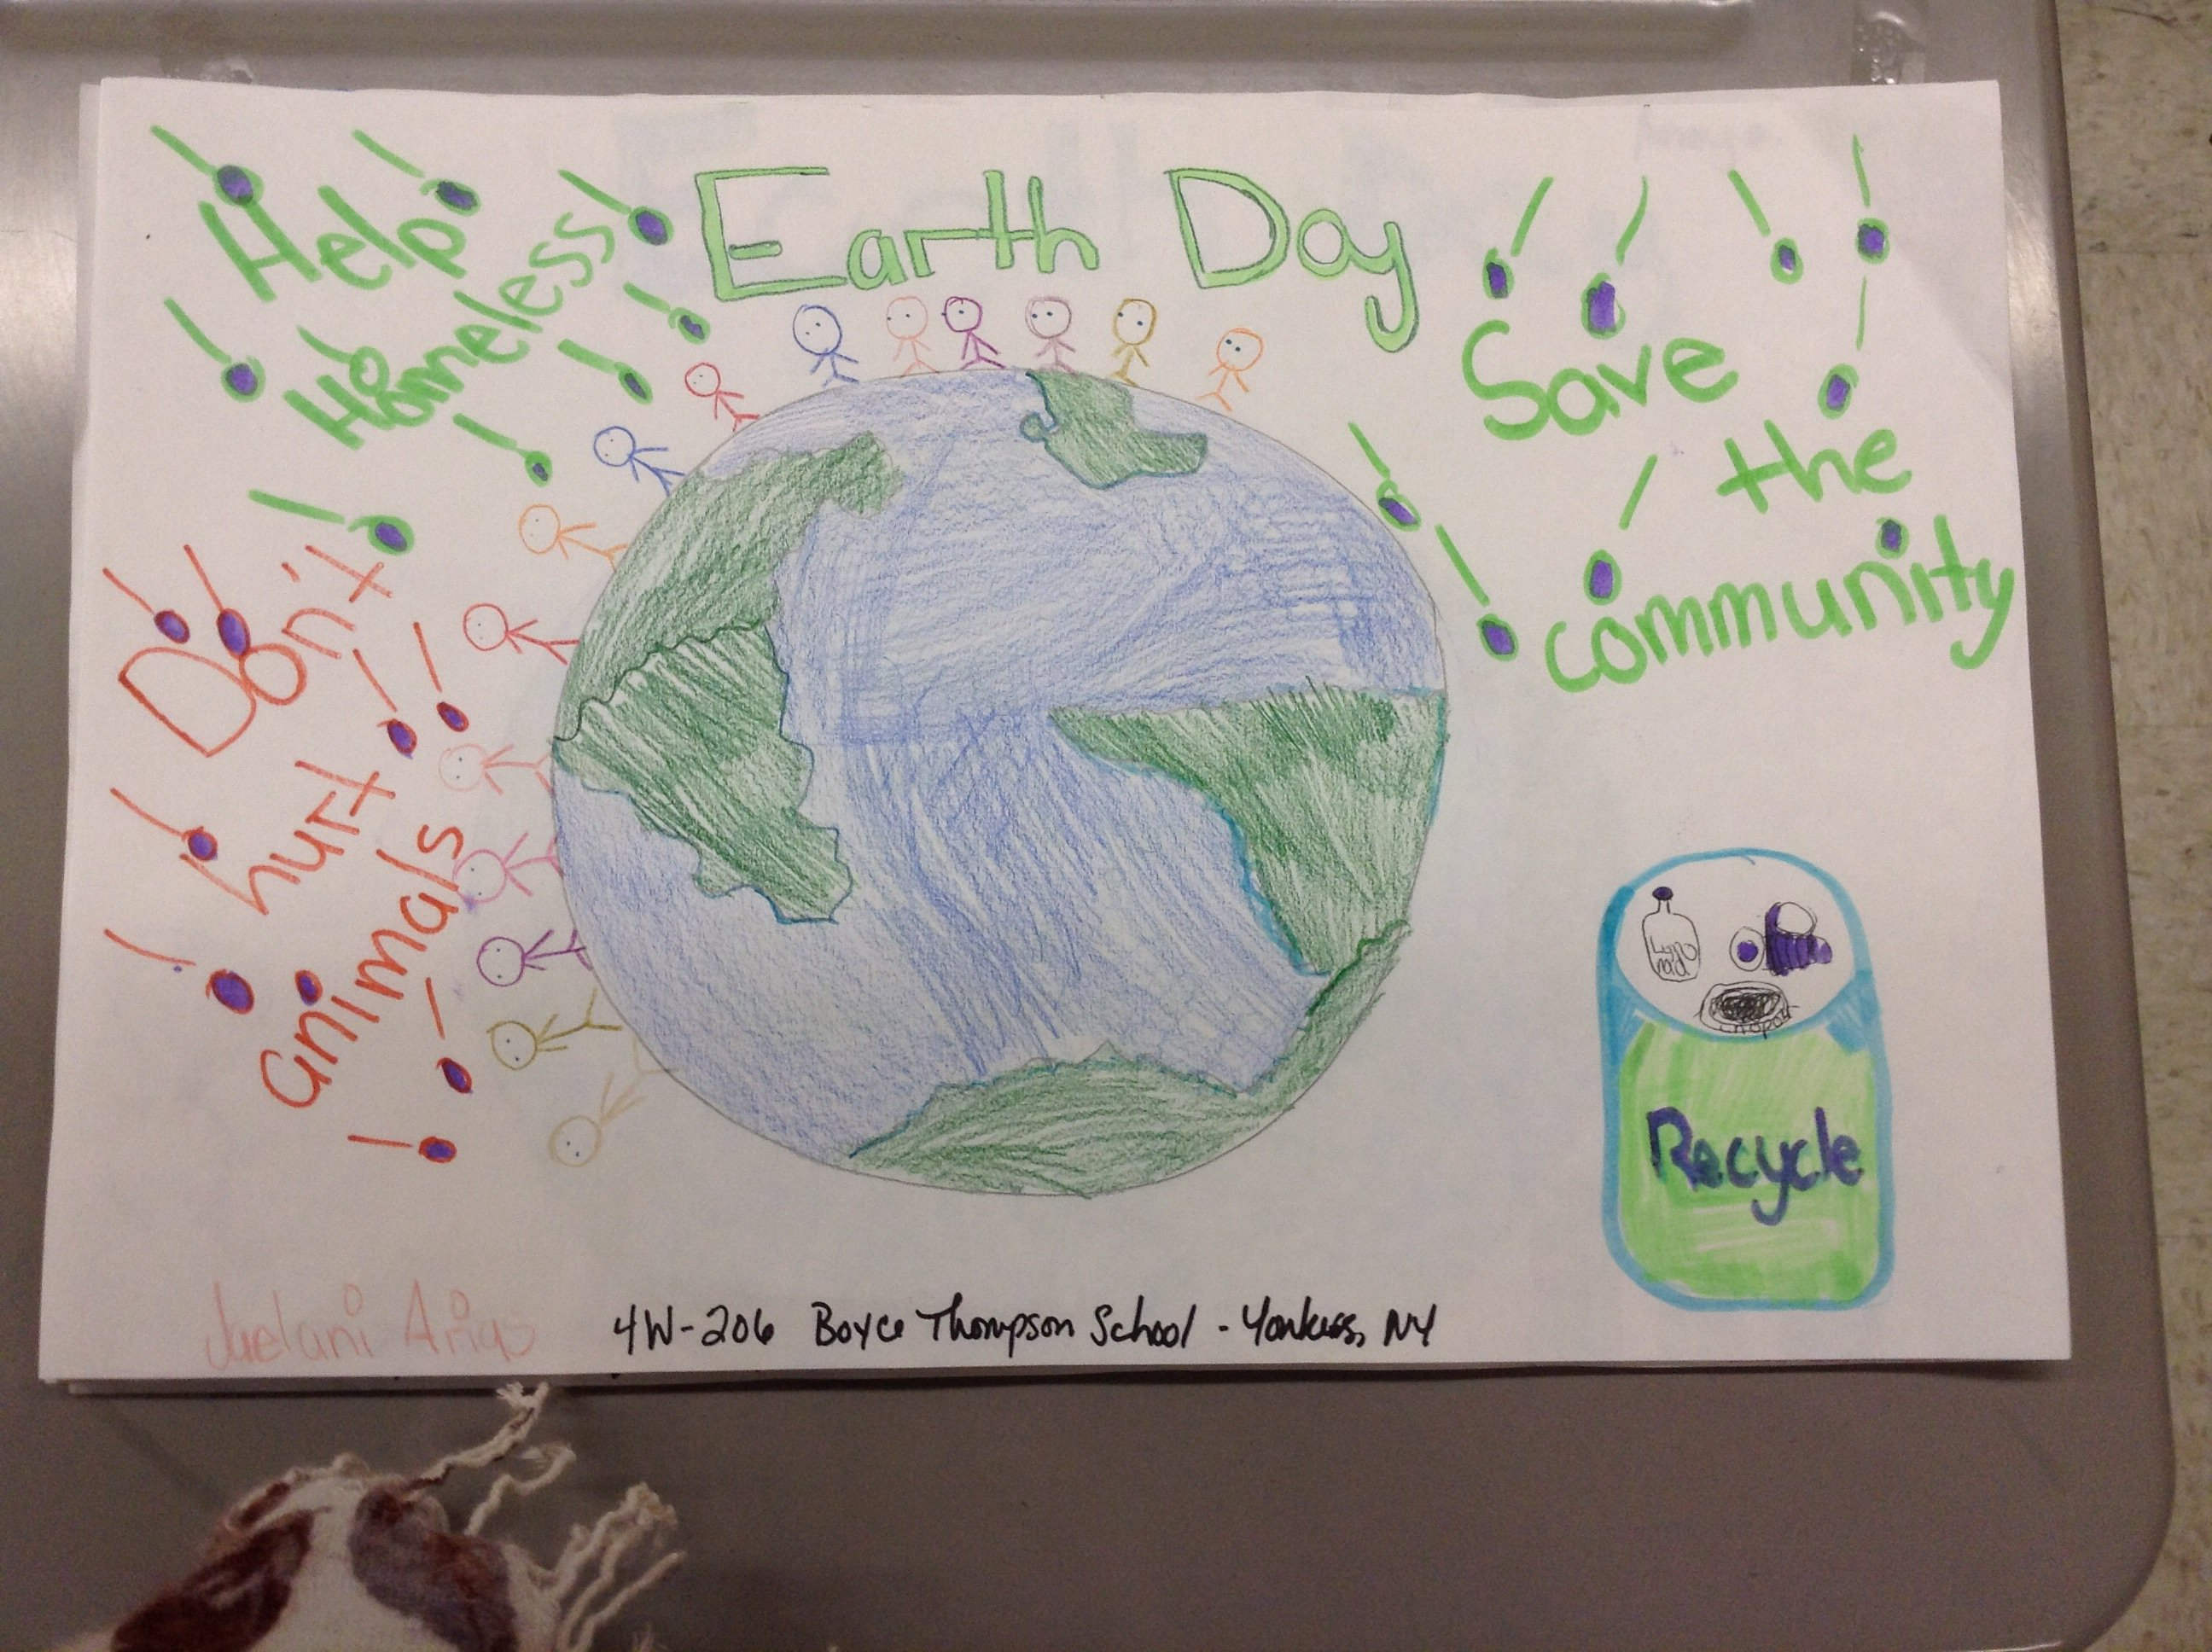 Earth Day
Help
Homeless
Save
the
community
Don't
hurt
animals
Recycle
Jaelani Arias
4W-206 Boyce Thompson School - Yonkers, NY